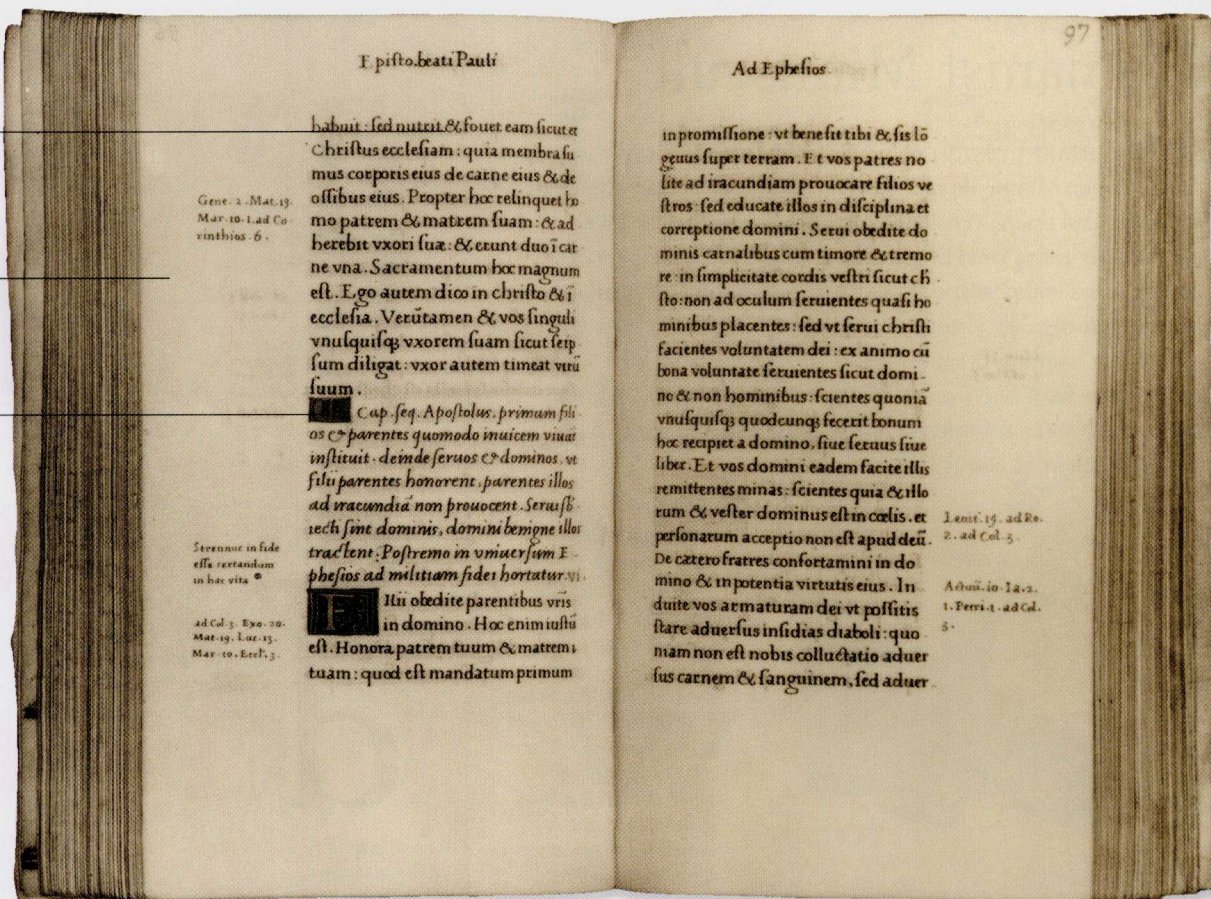 Episto.beati Pauli
habuit : sed nutrit & fouet eam sicut et
Christus ecclesiam : quia membra su
mus corporis eius de carne eius & de
ossibus eius. Propter hoc relinquet ho
mo patrem & matrem suam : & ad
herebit vxori suæ : & erunt duo ī car
ne vna. Sacramentum hoc magnum
est. Ego autem dico in christo & ī
ecclesia. Verūtamen & vos singuli
vnusquisqꝫ vxorem suam sicut seip
sum diligat : vxor autem timeat virū
suum.
Cap. seq. Apostolus, primum fili
os & parentes quomodo inuicem viuāt
instituit. deinde seruos & dominos. vt
filii parentes honorent, parentes illos
ad iracundiā non prouocent. Serui sb
iecti sint dominis, domini benigne illos
tractent. Postremo in vniuersum E
phesios ad militiam fidei hortatur. vi
Filii obedite parentibus vr̄is
in domino. Hoc enim iustū
est. Honora patrem tuum & matrem
tuam : quod est mandatum primum
Gene. 2. Mat. 19.
Mar. 10. 1. ad Co
rinthios. 6.
Strennue in fide
esse certandum
in hac vita
ad Col. 3. Exo. 20.
Mat. 19. Luc. 13.
Mar. 10. Eccl'. 3.
97
Ad Ephesios
in promissione : vt bene sit tibi & sis lō
geuus super terram. Et vos patres no
lite ad iracundiam prouocare filios ve
stros : sed educate illos in disciplina et
correptione domini. Serui obedite do
minis carnalibus cum timore & tremo
re : in simplicitate cordis vestri sicut ch̄
sto : non ad oculum seruientes quasi ho
minibus placentes : sed vt serui christi
facientes voluntatem dei : ex animo cū
bona voluntate seruientes sicut domi
no & non hominibus : scientes quoniā
vnusquisqꝫ quodcunqꝫ fecerit bonum
hoc recipiet a domino, siue seruus siue
liber. Et vos domini eadem facite illis
remittentes minas : scientes quia & illo
rum & vester dominus est in cœlis. et
personarum acceptio non est apud deū.
De cætero fratres confortamini in do
mino & in potentia virtutis eius. In
duite vos armaturam dei vt possitis
stare aduersus insidias diaboli : quo
niam non est nobis colluctatio aduer
sus carnem & sanguinem, sed aduer
Leuit'. 19. ad Ro.
2. ad Col. 3.
Actuū. 10. Ia. 2.
1. Petri. 1. ad Col.
3.